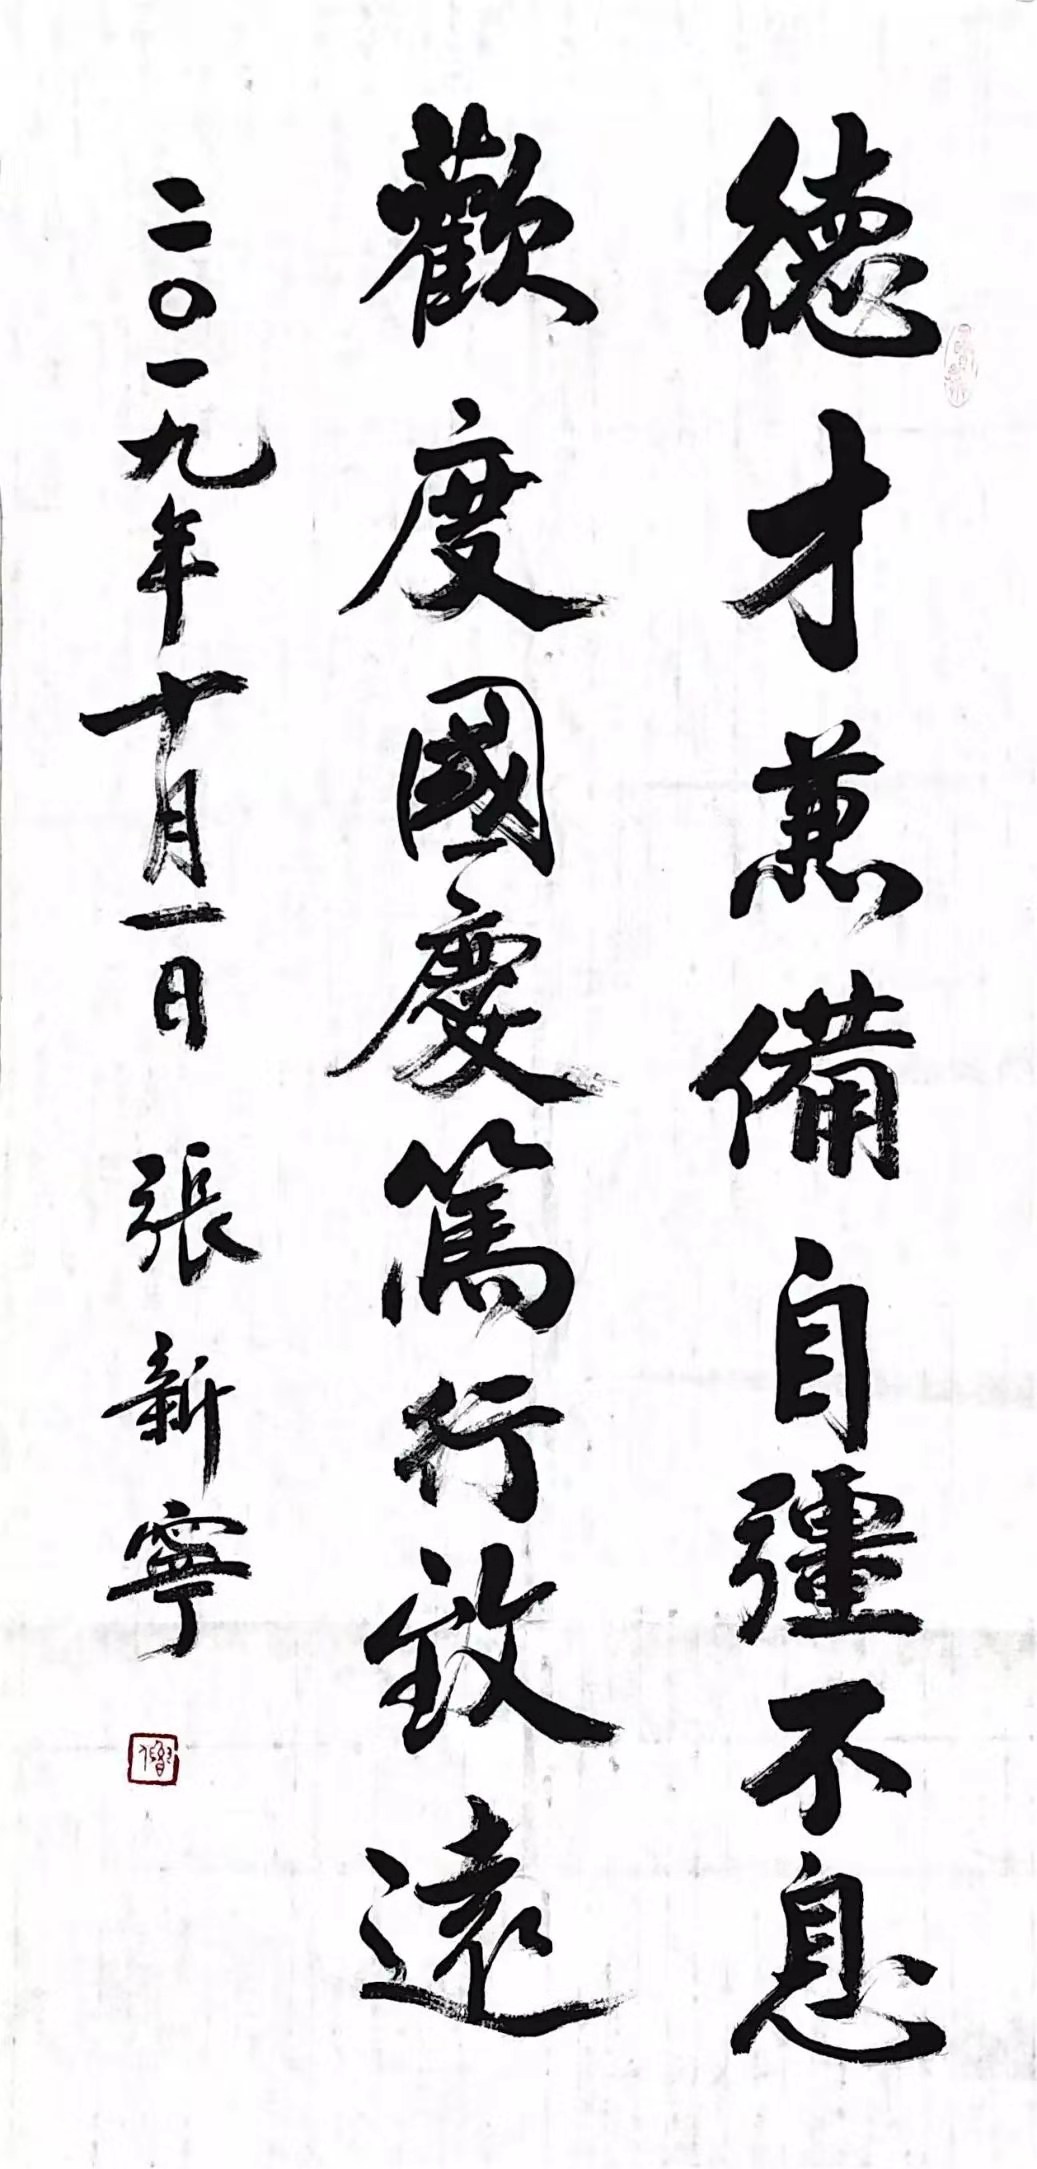 德才兼備自彊不息
歡度國慶篤行致遠
二〇一九年十月一日 張新寧